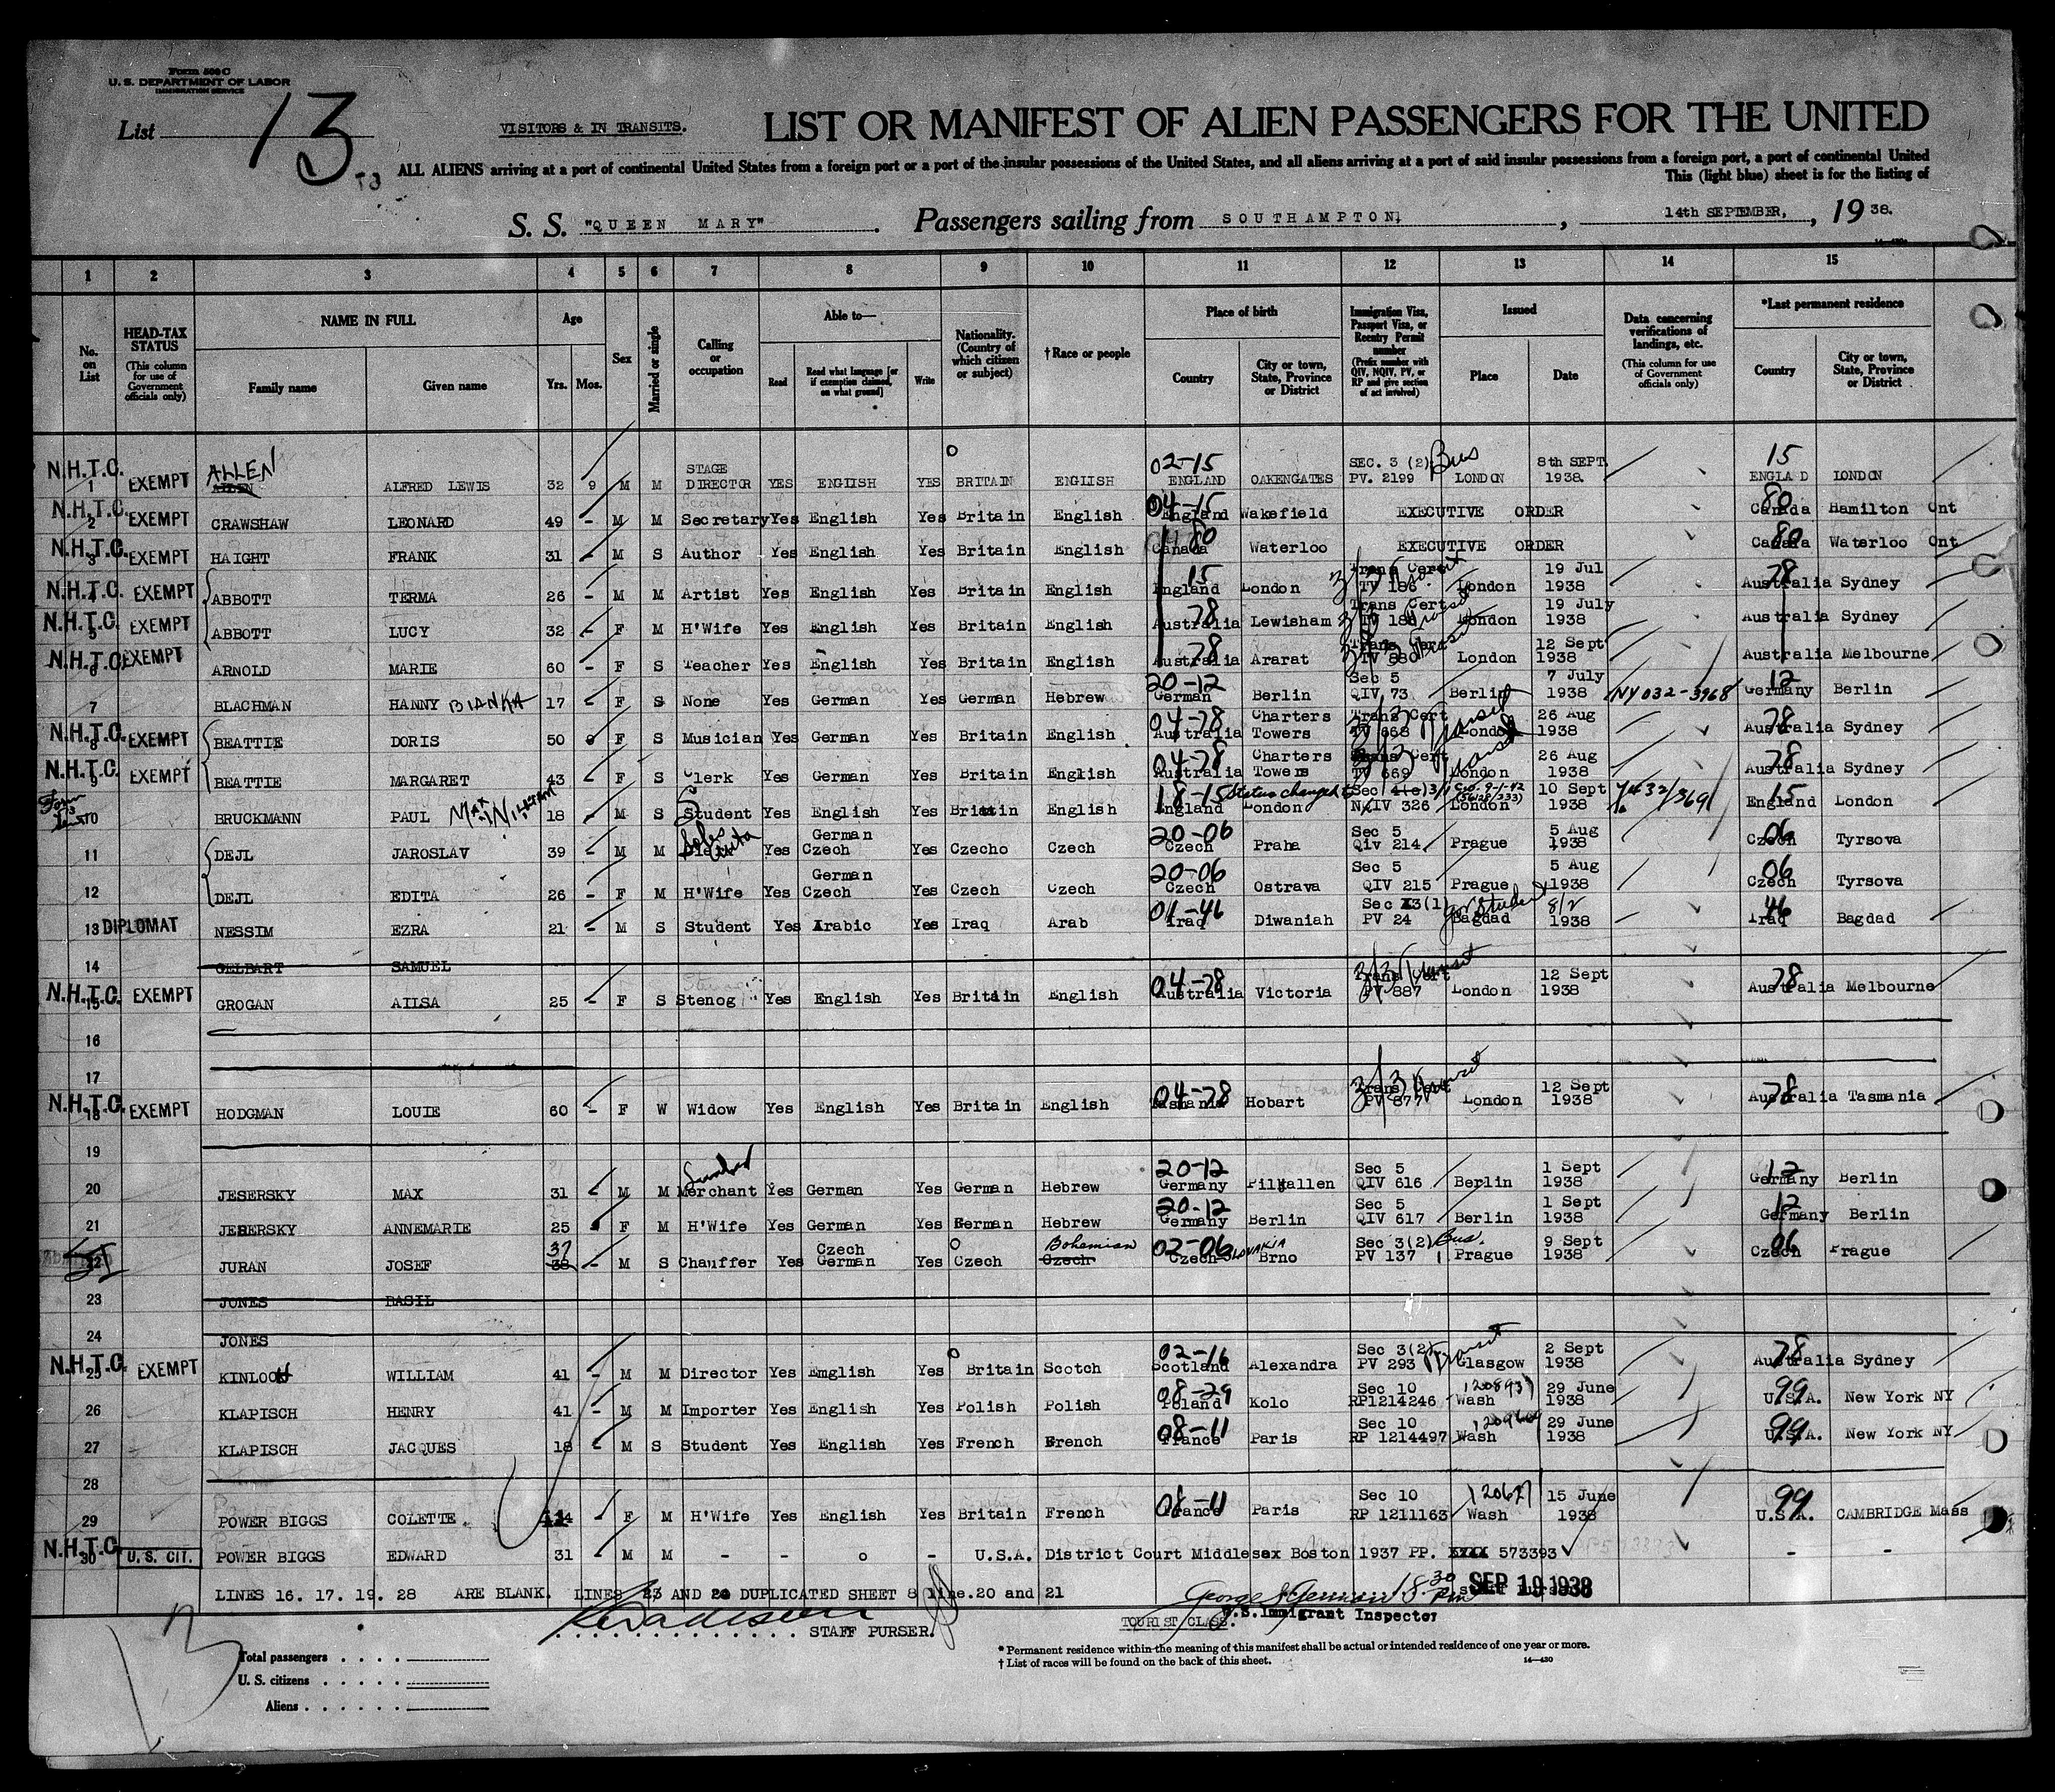 Form 500 C
U. S. DEPARTMENT OF LABOR
IMMIGRATION SERVICE
List 13
VISITORS & IN TRANSITS.
LIST OR MANIFEST OF ALIEN PASSENGERS FOR THE UNITED
ALL ALIENS arriving at a port of continental United States from a foreign port or a port of the insular possessions of the United States, and all aliens arriving at a port of said insular possessions from a foreign port, a port of continental United
This (light blue) sheet is for the listing of
S. S. "QUEEN MARY". Passengers sailing from SOUTHAMPTON, 14th SEPTEMBER, 1938.
1 2 3 4 5 6 7 8 9 10 11 12 13 14 15
No. on List
HEAD-TAX STATUS (This column for use of Government officials only)
NAME IN FULL
Family name Given name
Age
Yrs. Mos.
Sex
Married or single
Calling or occupation
Able to—
Read Read what language [or if exemption claimed, on what ground] Write
Nationality. (Country of which citizen or subject)
†Race or people
Place of birth
Country City or town, State, Province or District
Immigration Visa, Passport Visa, or Reentry Permit number (Prefix number with QIV, NQIV, PV, or RP and give section of act involved)
Issued
Place Date
Data concerning verifications of landings, etc. (This column for use of Government officials only)
*Last permanent residence
Country City or town, State, Province or District
N.H.T.C. 1 EXEMPT ALLEN ALFRED LEWIS 32 9 M M STAGE DIRECTOR YES ENGLISH YES BRITAIN ENGLISH 02-15 ENGLAND OAKENGATES SEC. 3 (2) PV. 2199 Bus LONDON 8th SEPT. 1938. 15 ENGLAD LONDON
N.H.T.C. 2 EXEMPT CRAWSHAW LEONARD 49 - M M Secretary Yes English Yes Britain English 04-15 England Wakefield EXECUTIVE ORDER 80 Canada Hamilton Ont
N.H.T.C. 3 EXEMPT HAIGHT FRANK 31 - M S Author Yes English Yes Britain English 80 Canada Waterloo EXECUTIVE ORDER 80 Canada Waterloo Ont
N.H.T.C. 4 EXEMPT ABBOTT TERMA 26 - M M Artist Yes English Yes Britain English 15 England London Trans Cert TV 186 3/3 Transit London 19 Jul 1938 78 Australia Sydney
N.H.T.C. 5 EXEMPT ABBOTT LUCY 32 - F M H'Wife Yes English Yes Britain English 78 Australia Lewisham Trans Cert 3/3 Transit London 19 July 1938 Australia Sydney
N.H.T.C. 6 EXEMPT ARNOLD MARIE 60 - F S Teacher Yes English Yes Britain English 78 Australia Ararat TV 880 3/3 Transit London 12 Sept 1938 Australia Melbourne
7 BLACHMAN HANNY BIANKA 17 - F S None Yes German Yes German Hebrew 20-12 German Berlin Sec 5 QIV 73 Berlin 7 July 1938 NY032-3968 12 Germany Berlin
N.H.T.C. 8 EXEMPT BEATTIE DORIS 50 F S Musician Yes German Yes Britain English 04-78 Australia Charters Towers Trans Cert TV 668 3/3 Transit London 26 Aug 1938 78 Australia Sydney
N.H.T.C. 9 EXEMPT BEATTIE MARGARET 43 - F S Clerk Yes German Yes Britain English 04-78 Australia Charters Towers Trans Cert TV 669 3/3 Transit London 26 Aug 1938 78 Australia Sydney
10 BRUCKMANN PAUL 18 - M S Student Yes English Yes Britain English 18-15 England London Status changed to Sec 326 London 10 Sept 1938 15 England London
11 DEJL JAROSLAV 39 - M M Yes German Czech Yes Czecho Czech 20-06 Czech Praha Sec 5 Qiv 214 Prague 5 Aug 1938 06 Czech Tyrsova
12 DEJL EDITA 26 - F M H'Wife Yes German Czech Yes Czech Czech 20-06 Czech Ostrava Sec 5 QIV 215 Prague 5 Aug 1938 06 Czech Tyrsova
13 DIPLOMAT NESSIM EZRA 21 - M S Student Yes Arabic Yes Iraq Arab 01-46 Iraq Diwaniah Sec 3(1) PV 24 Gov Student Bagdad 8/2 1938 46 Iraq Bagdad
14 GELBART SAMUEL
N.H.T.C. 15 EXEMPT GROGAN AILSA 25 - F S Stenog Yes English Yes Britain English 04-78 Australia Victoria Trans Cert PV 887 3/3 Transit London 12 Sept 1938 78 Australia Melbourne
16
17
N.H.T.C. 18 EXEMPT HODGMAN LOUIE 60 - F W Widow Yes English Yes Britain English 04-78 Tasmania Hobart Trans Cert PV 877 3/3 Transit London 12 Sept 1938 78 Australia Tasmania
19
20 JESERSKY MAX 31 - M M Merchant Yes German Yes German Hebrew 20-12 Germany Pilkallen Sec 5 QIV 616 Berlin 1 Sept 1938 12 Germany Berlin
21 JESERSKY ANNEMARIE 25 F M H'Wife Yes German Yes German Hebrew 20-12 Germany Berlin Sec 5 QIV 617 Berlin 1 Sept 1938 12 Germany Berlin
22 JURAN JOSEF 37 38 - M S Chauffer Yes Czech German Yes Czech Bohemian Czech 02-06 Czech SLOVAKIA Brno Sec 3(2) PV 137 Bus. Prague 9 Sept 1938 06 Czech Prague
23 JONES BASIL
24 JONES
N.H.T.C. 25 EXEMPT KINLOCH WILLIAM 41 - M M Director Yes Emglish Yes Britain Scotch 02-16 Scotland Alexandra Sec 3(2) PV 293 Transit Glasgow 2 Sept 1938 78 Australia Sydney
26 KLAPISCH HENRY 41 - M M Importer Yes English Yes Polish Polish 08-29 Poland Kolo Sec 10 RP1214246 Wash 29 June 1938 99 U.S.A. New York NY
27 KLAPISCH JACQUES 18 - M S Student Yes English Yes French French 08-11 France Paris Sec 10 RP 1214497 Wash 29 June 1938 99 U.S.A. New York NY
28
29 POWER BIGGS COLETTE - F M H'Wife Yes English Yes Britain French 08-11 France Paris Sec 10 RP 1211163 Wash 15 June 1938 99 U.S.A. CAMBRIDGE Mass
N.H.T.C. 30 U.S. CIT. POWER BIGGS EDWARD 31 - M M - - o - U.S.A. District Court Middlesex Boston 1937 PP. XXXX 573393 - -
LINES 16. 17. 19. 28 ARE BLANK. LINES 23 AND 24 DUPLICATED SHEET 8 line.20 and 21
SEP 19 1938
U.S. Immigrant Inspector
STAFF PURSER.
TOURIST CLASS.
Total passengers
U. S. citizens
Aliens
* Permanent residence within the meaning of this manifest shall be actual or intended residence of one year or more.
† List of races will be found on the back of this sheet.
14—430